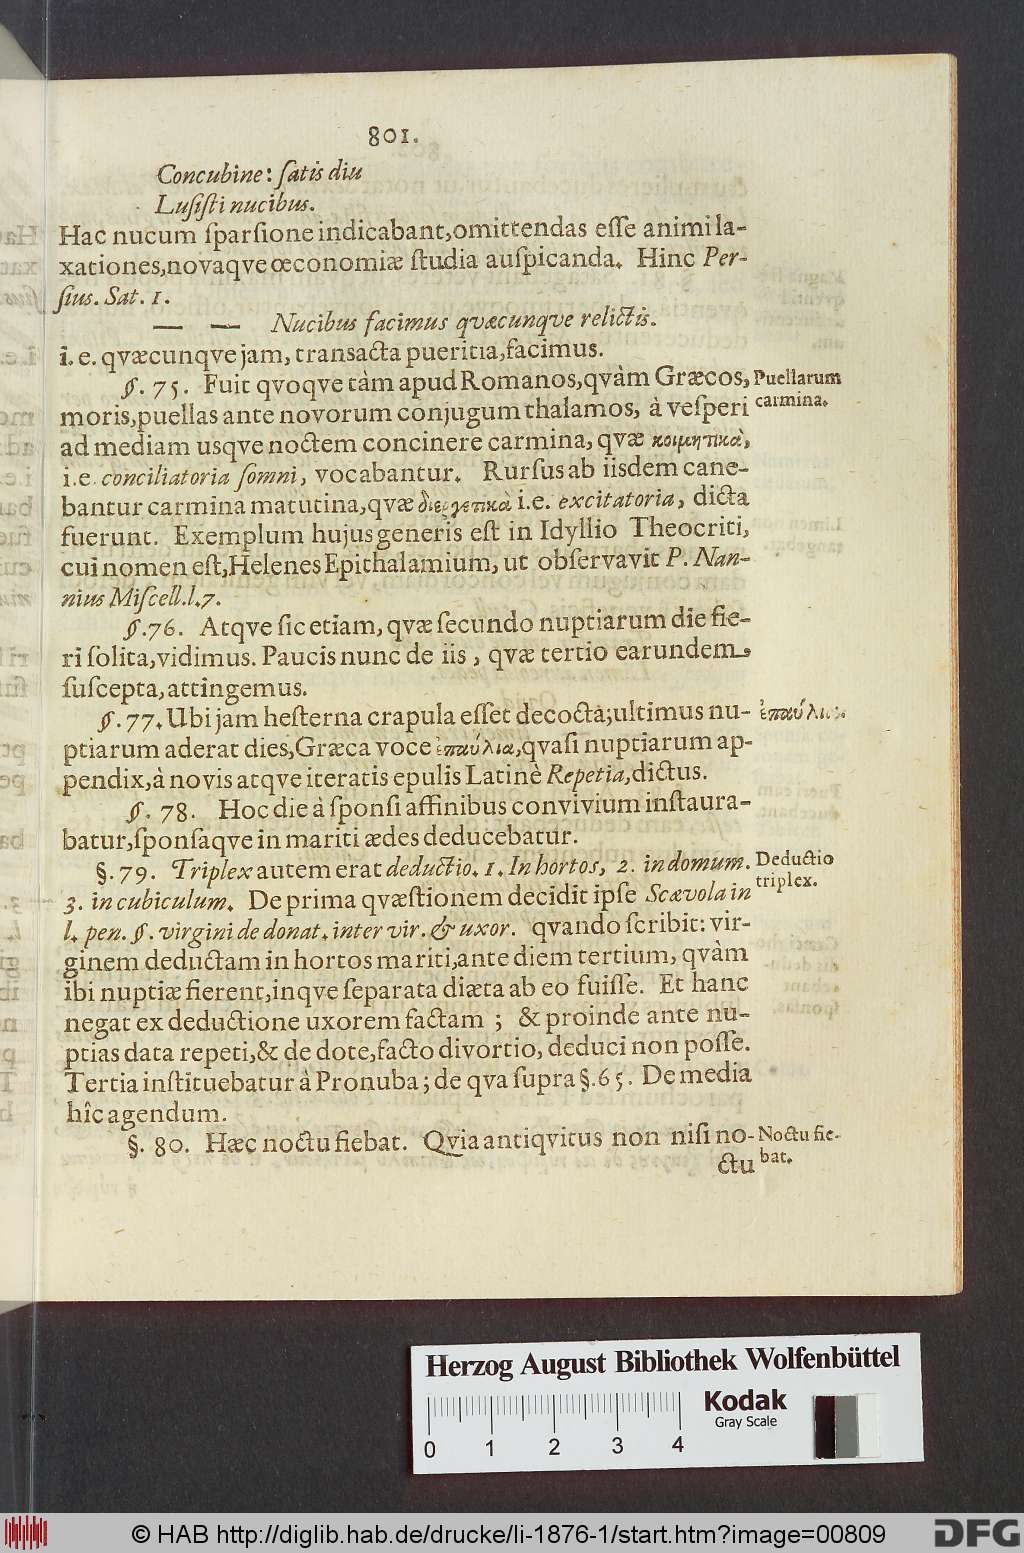 801.
Concubine: ſatis diu
Luſiſti nucibus.
Hac nucum ſparſione indicabant, omittendas eſſe animi la-
xationes, novaqve œconomiæ ſtudia auſpicanda. Hinc Per-
ſius. Sat. 1.
— — Nucibus facimus qvæcunqve relictis.
i. e. qvæcunqve jam, transacta pueritia, facimus.
§. 75. Fuit qvoqve tàm apud Romanos, qvàm Græcos,
Puellarum
carmina.
moris, puellas ante novorum conjugum thalamos, à veſperi
ad mediam usqve noctem concinere carmina, qvæ κοιμητικὰ,
i.e. conciliatoria ſomni, vocabantur. Rurſus ab iisdem cane-
bantur carmina matutina, qvæ διεγερτικὰ i.e. excitatoria, dicta
fuerunt. Exemplum hujus generis eſt in Idyllio Theocriti,
cui nomen eſt, Helenes Epithalamium, ut obſervavit P. Nan-
nius Miſcell. l. 7.
§. 76. Atqve ſic etiam, qvæ ſecundo nuptiarum die fie-
ri ſolita, vidimus. Paucis nunc de iis, qvæ tertio earundem
ſuſcepta, attingemus.
§. 77. Ubi jam heſterna crapula eſſet decocta; ultimus nu-
ἐπαύλια.
ptiarum aderat dies, Græca voce ἐπαύλια, qvaſi nuptiarum ap-
pendix, à novis atqve iteratis epulis Latinè Repetia, dictus.
§. 78. Hoc die à ſponſi affinibus convivium inſtaura-
batur, ſponſaqve in mariti ædes deducebatur.
§. 79. Triplex autem erat deductio. 1. In hortos, 2. in domum.
Deductio
triplex.
3. in cubiculum. De prima qvæſtionem decidit ipſe Scævola in
l. pen. §. virgini de donat. inter vir. & uxor. qvando ſcribit: vir-
ginem deductam in hortos mariti, ante diem tertium, qvàm
ibi nuptiæ fierent, inqve ſeparata diæta ab eo fuiſſe. Et hanc
negat ex deductione uxorem factam; & proinde ante nu-
ptias data repeti, & de dote, facto divortio, deduci non poſſe.
Tertia inſtituebatur à Pronuba; de qva ſupra §. 65. De media
hîc agendum.
§. 80. Hæc noctu fiebat. Qvia antiqvitus non niſi no-
Noctu fie-
bat.
ctu
Herzog August Bibliothek Wolfenbüttel
Kodak
Gray Scale
0 1 2 3 4
© HAB http://diglib.hab.de/drucke/li-1876-1/start.htm?image=00809
DFG